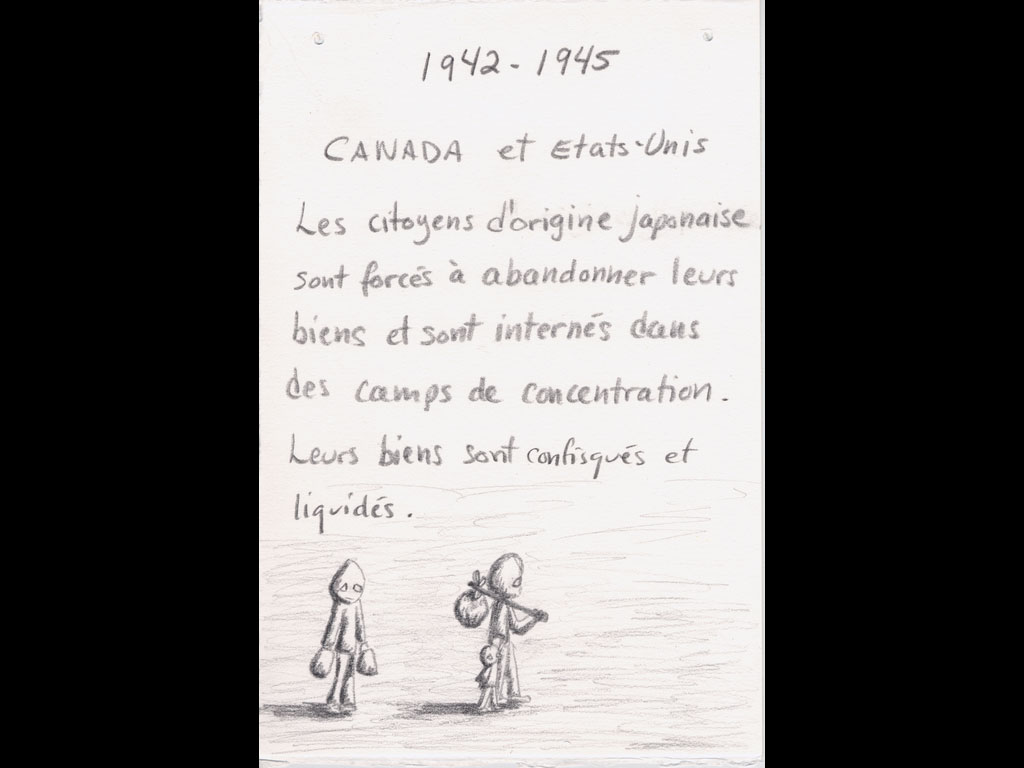 1942 - 1945
CANADA et Etats-Unis
Les citoyens d'origine japonaise
sont forcés à abandonner leurs
biens et sont internés dans
des camps de concentration.
Leurs biens sont confisqués et
liquidés.